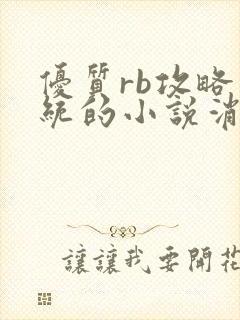 優質rb攻略
統的小說消
讓讓我要開花